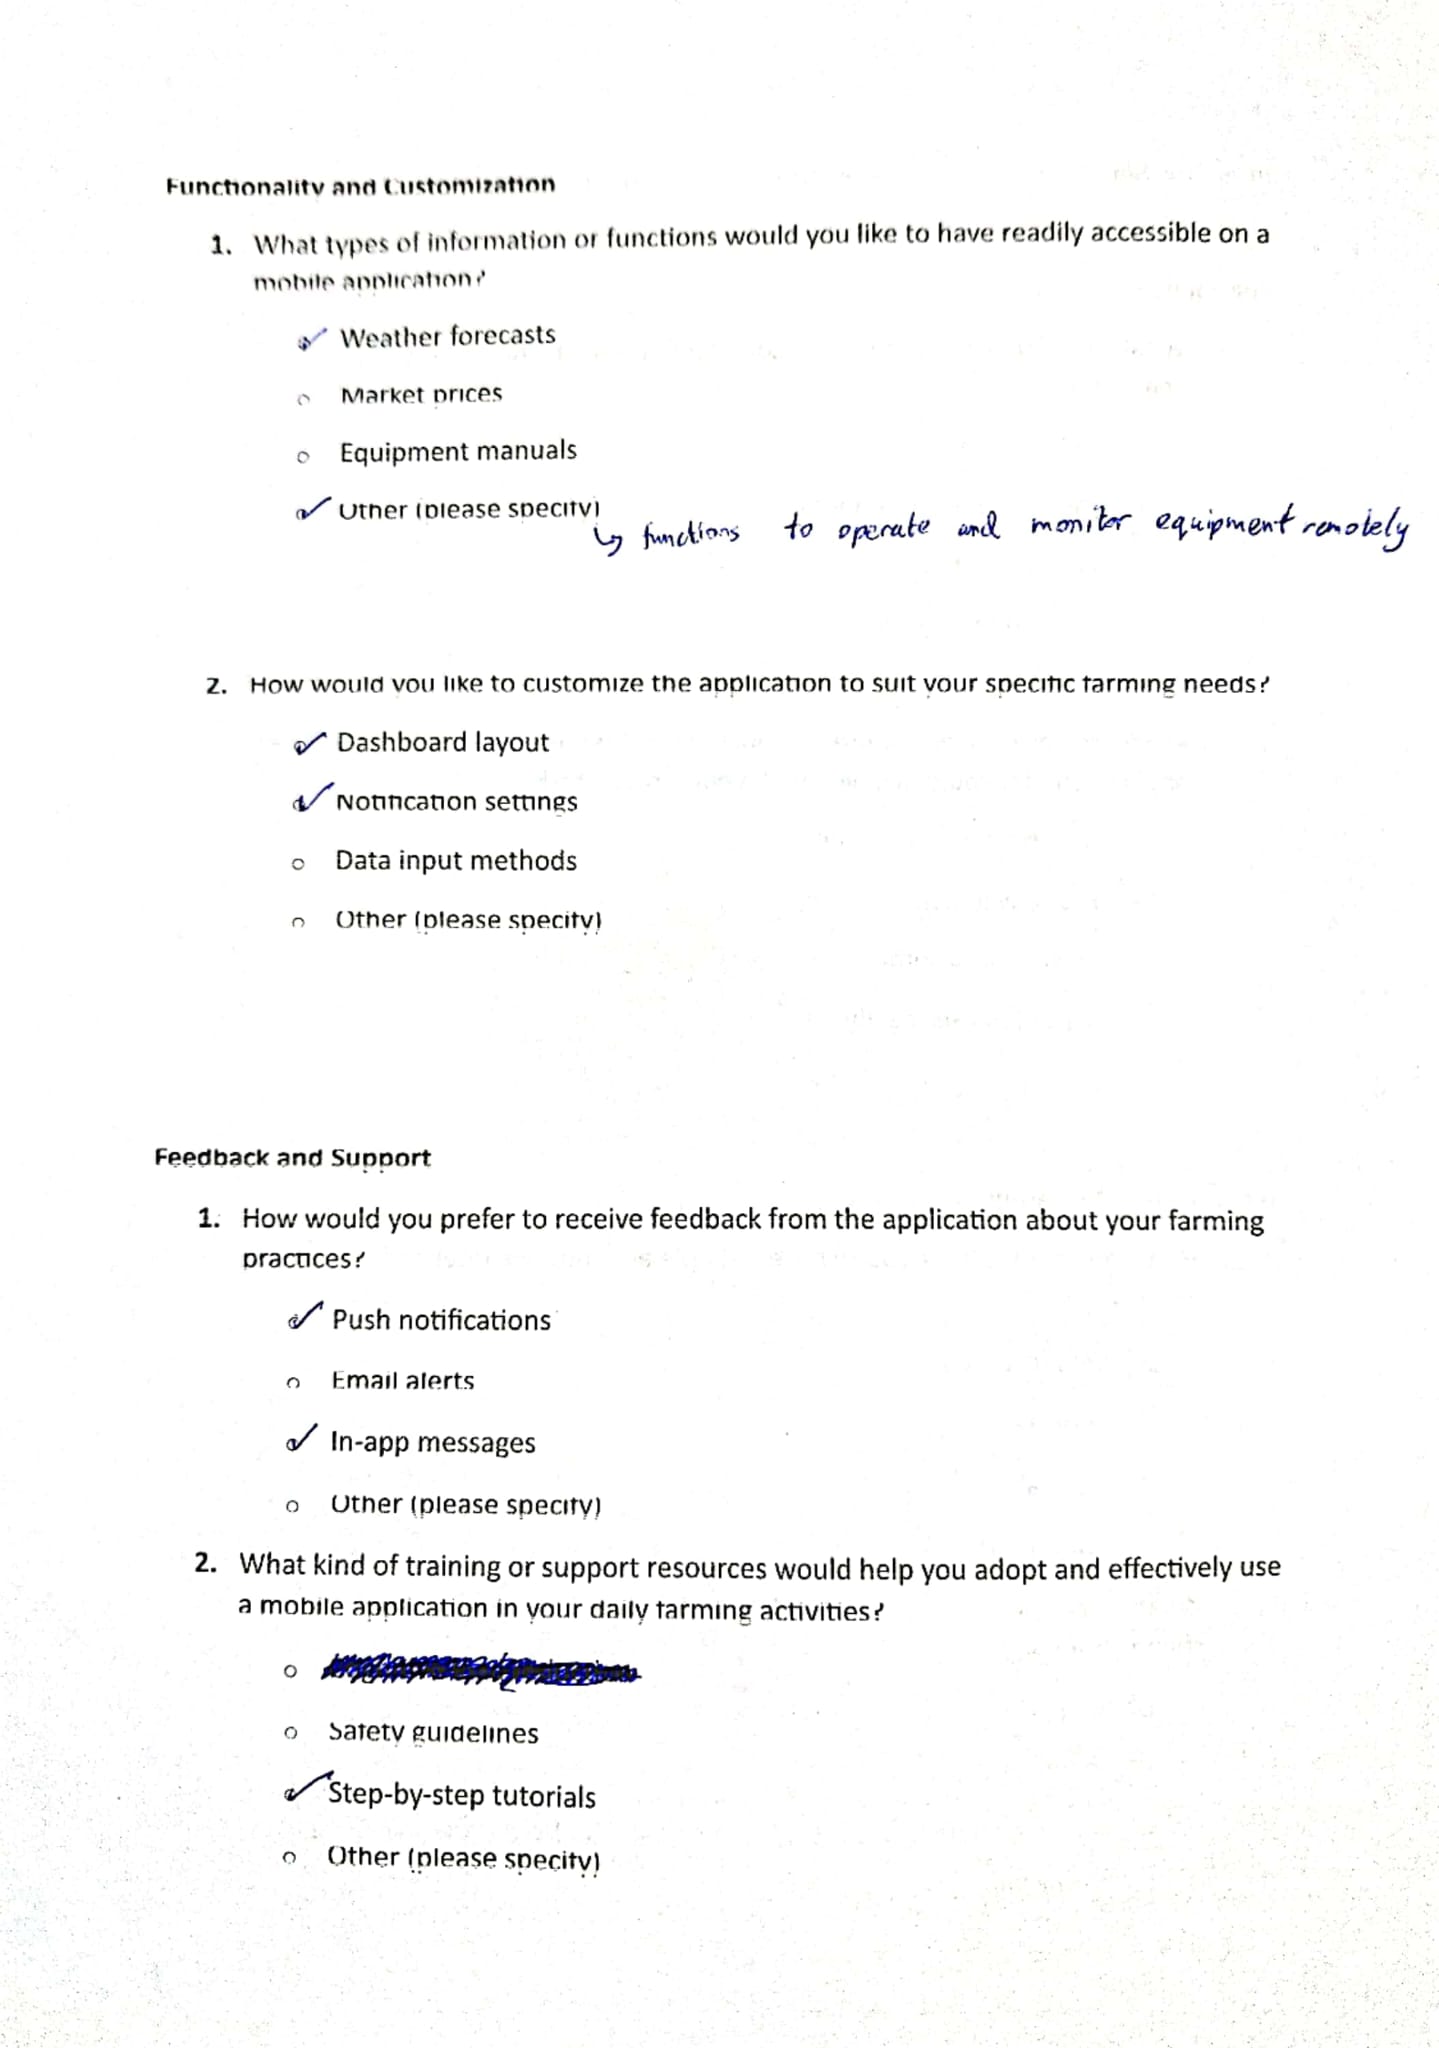 Functionality and Customization
1. What types of information or functions would you like to have readily accessible on a
mobile application?
✓ Weather forecasts
o Market prices
o Equipment manuals
✓ Other (please specify)
↳ functions to operate and monitor equipment remotely
2. How would you like to customize the application to suit your specific farming needs?
✓ Dashboard layout
✓ Notification settings
o Data input methods
o Other (please specify)
Feedback and Support
1. How would you prefer to receive feedback from the application about your farming
practices?
✓ Push notifications
o Email alerts
✓ In-app messages
o Other (please specify)
2. What kind of training or support resources would help you adopt and effectively use
a mobile application in your daily farming activities?
o
o Safety guidelines
✓ Step-by-step tutorials
o Other (please specify)